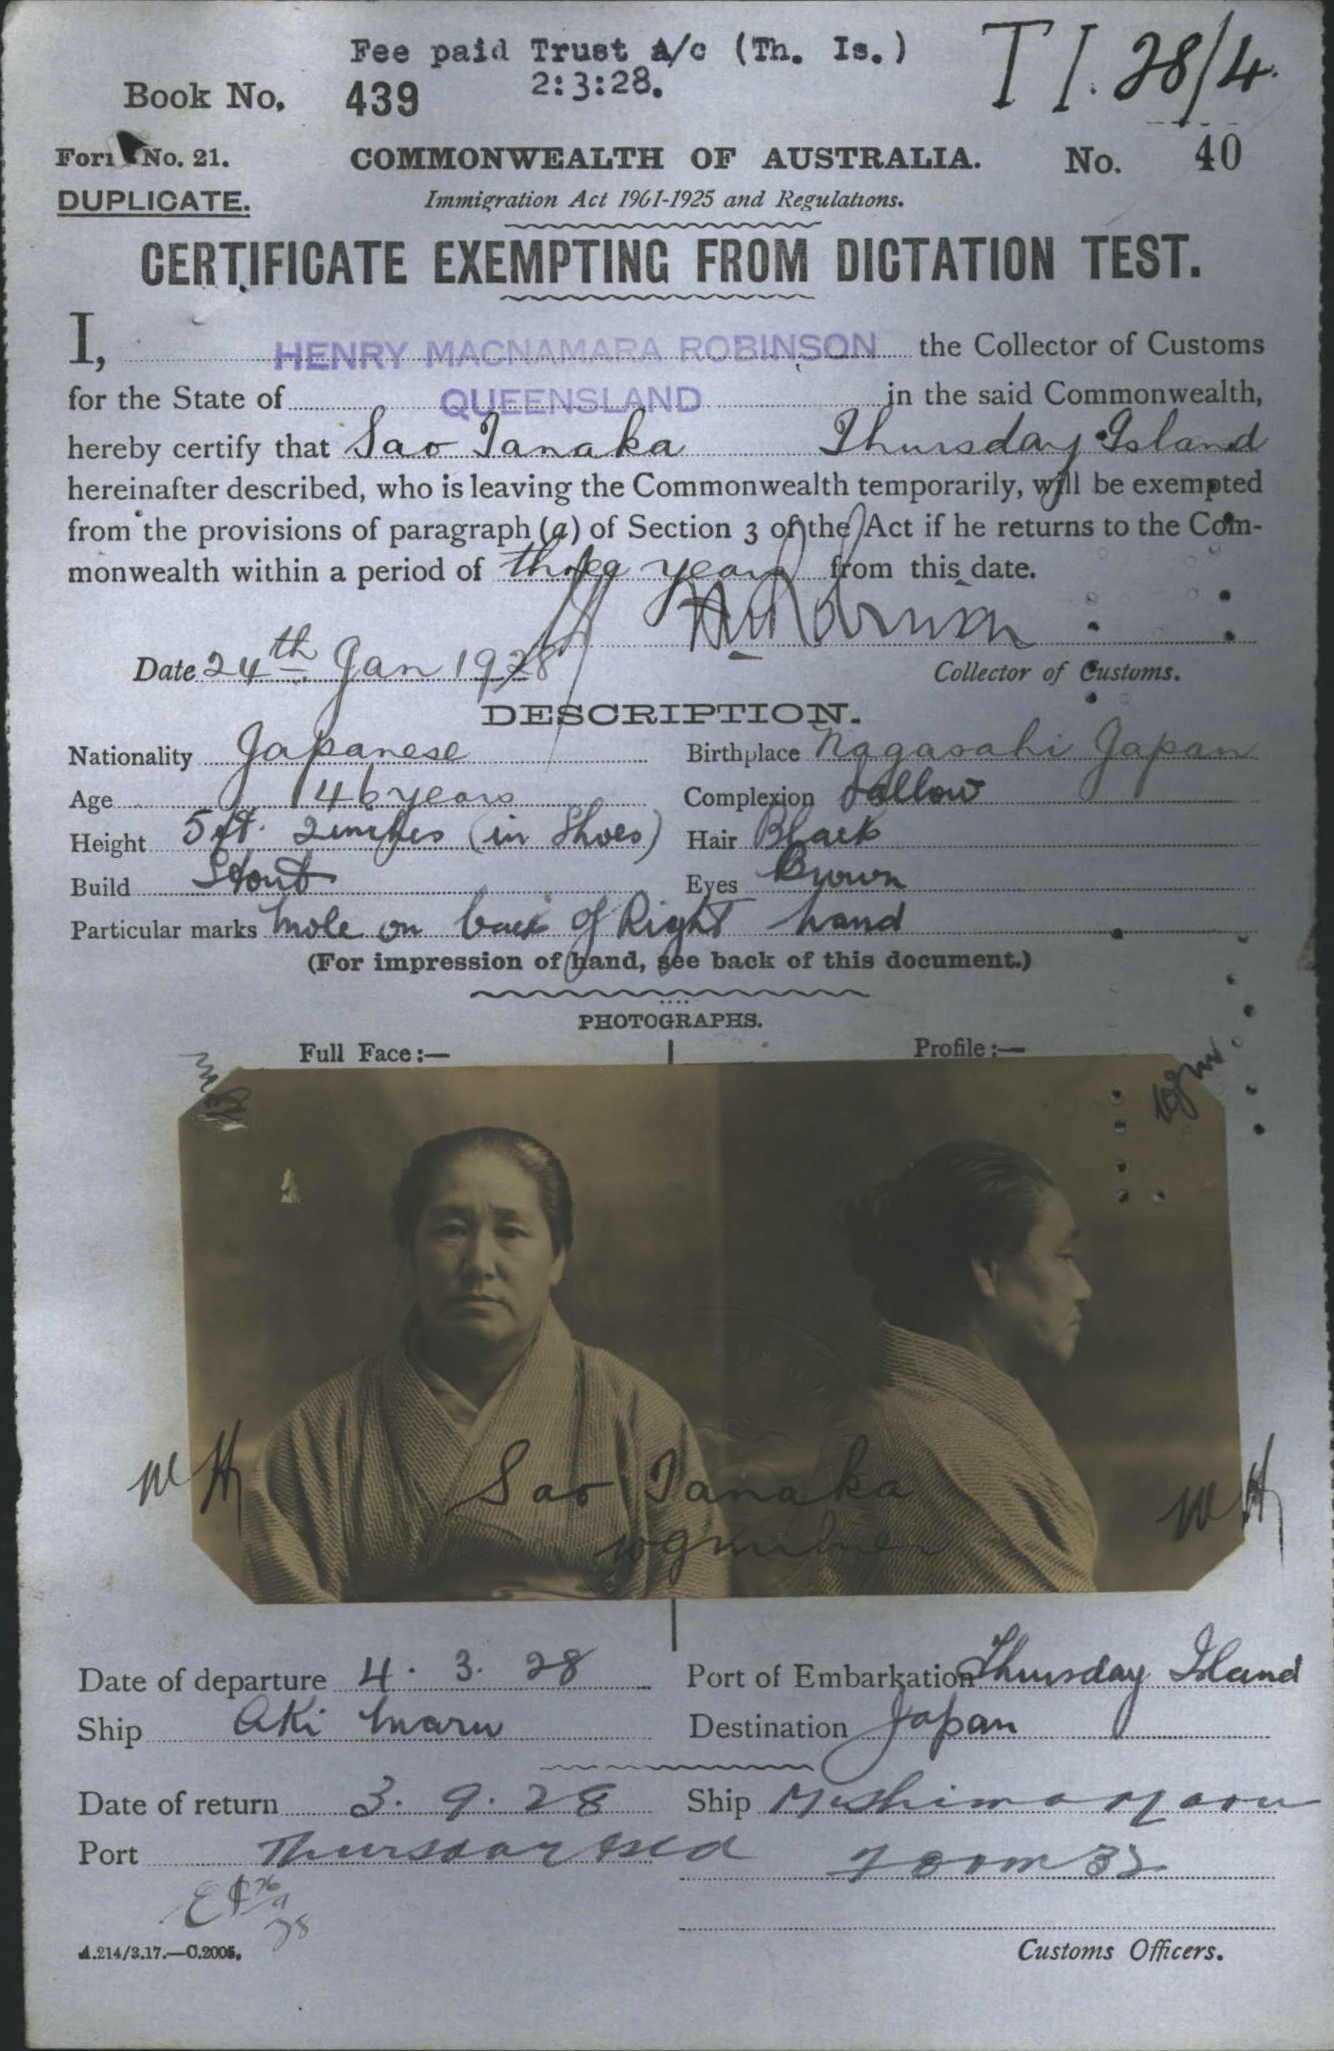 Fee paid Trust A/c (Th. Is.)
2:3:28.
T I. 28/4
Book No. 439
Form No. 21.
COMMONWEALTH OF AUSTRALIA.
No. 40
DUPLICATE.
Immigration Act 1901-1925 and Regulations.
CERTIFICATE EXEMPTING FROM DICTATION TEST.
I, HENRY MACNAMARA ROBINSON the Collector of Customs
for the State of QUEENSLAND in the said Commonwealth,
hereby certify that Sao Tanaka Thursday Island
hereinafter described, who is leaving the Commonwealth temporarily, will be exempted
from the provisions of paragraph (a) of Section 3 of the Act if he returns to the Com-
monwealth within a period of three years from this date.
Date 24th Jan 1928
Collector of Customs.
DESCRIPTION.
Nationality Japanese Birthplace Nagasaki Japan
Age 46 years Complexion Sallow
Height 5 ft. 2 inches (in Shoes) Hair Black
Build Stout Eyes Brown
Particular marks Mole on back of Right hand
(For impression of hand, see back of this document.)
PHOTOGRAPHS.
Full Face:— Profile:—
WH
Sao Tanaka
WH
Date of departure 4. 3. 28 Port of Embarkation Thursday Island
Ship Aki Maru Destination Japan
Date of return 3. 9. 28 Ship Mishima Maru
Port Thursday Isld
Form 32
A.214/3.17.—C.2005.
Customs Officers.